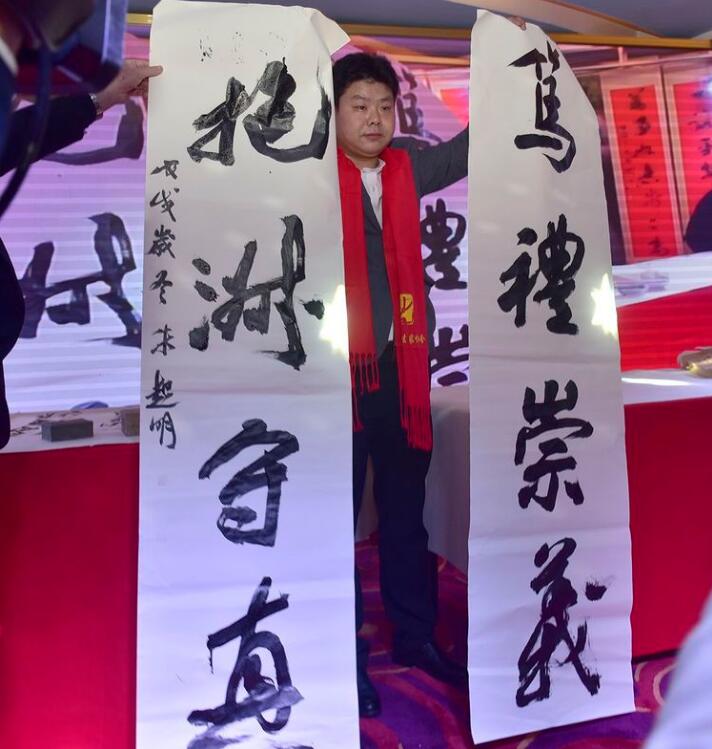 篤禮崇義
抱淑守真
戊戌歲冬朱明